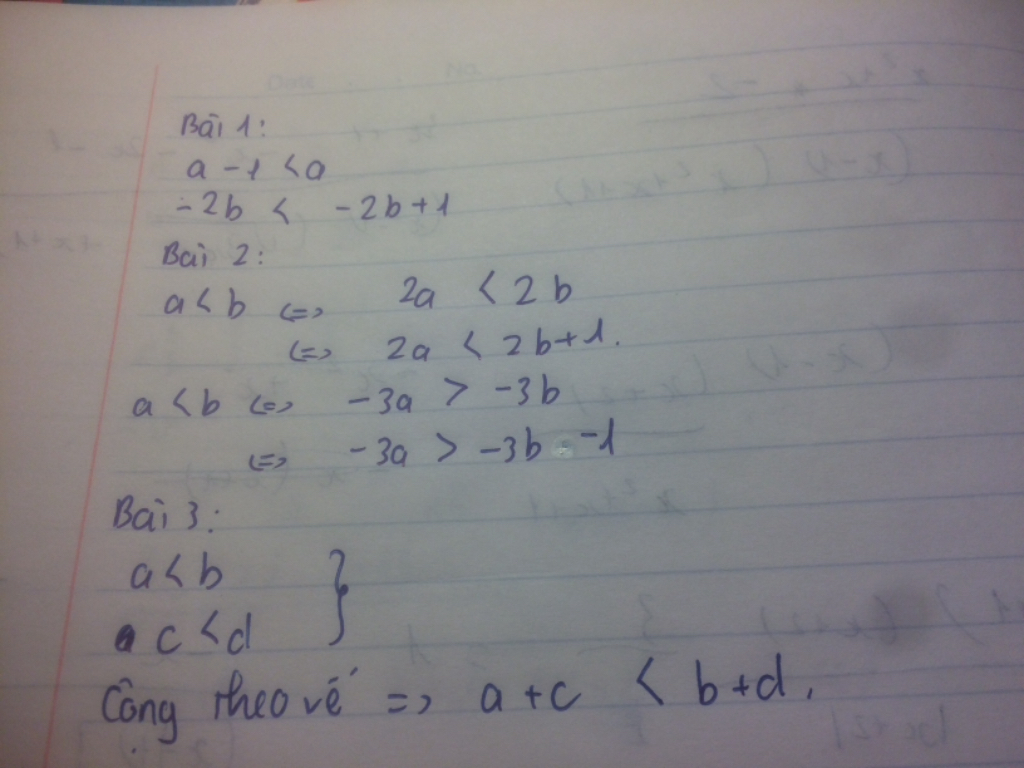 Bài 1:
a - 1 < a
- 2b < - 2b + 1
Bài 2:
a < b <=> 2a < 2b
<=> 2a < 2b + 1.
a < b <=> - 3a > - 3b
<=> - 3a > - 3b - 1
Bài 3:
a < b }
c < d
Công theo vế => a + c < b + d.